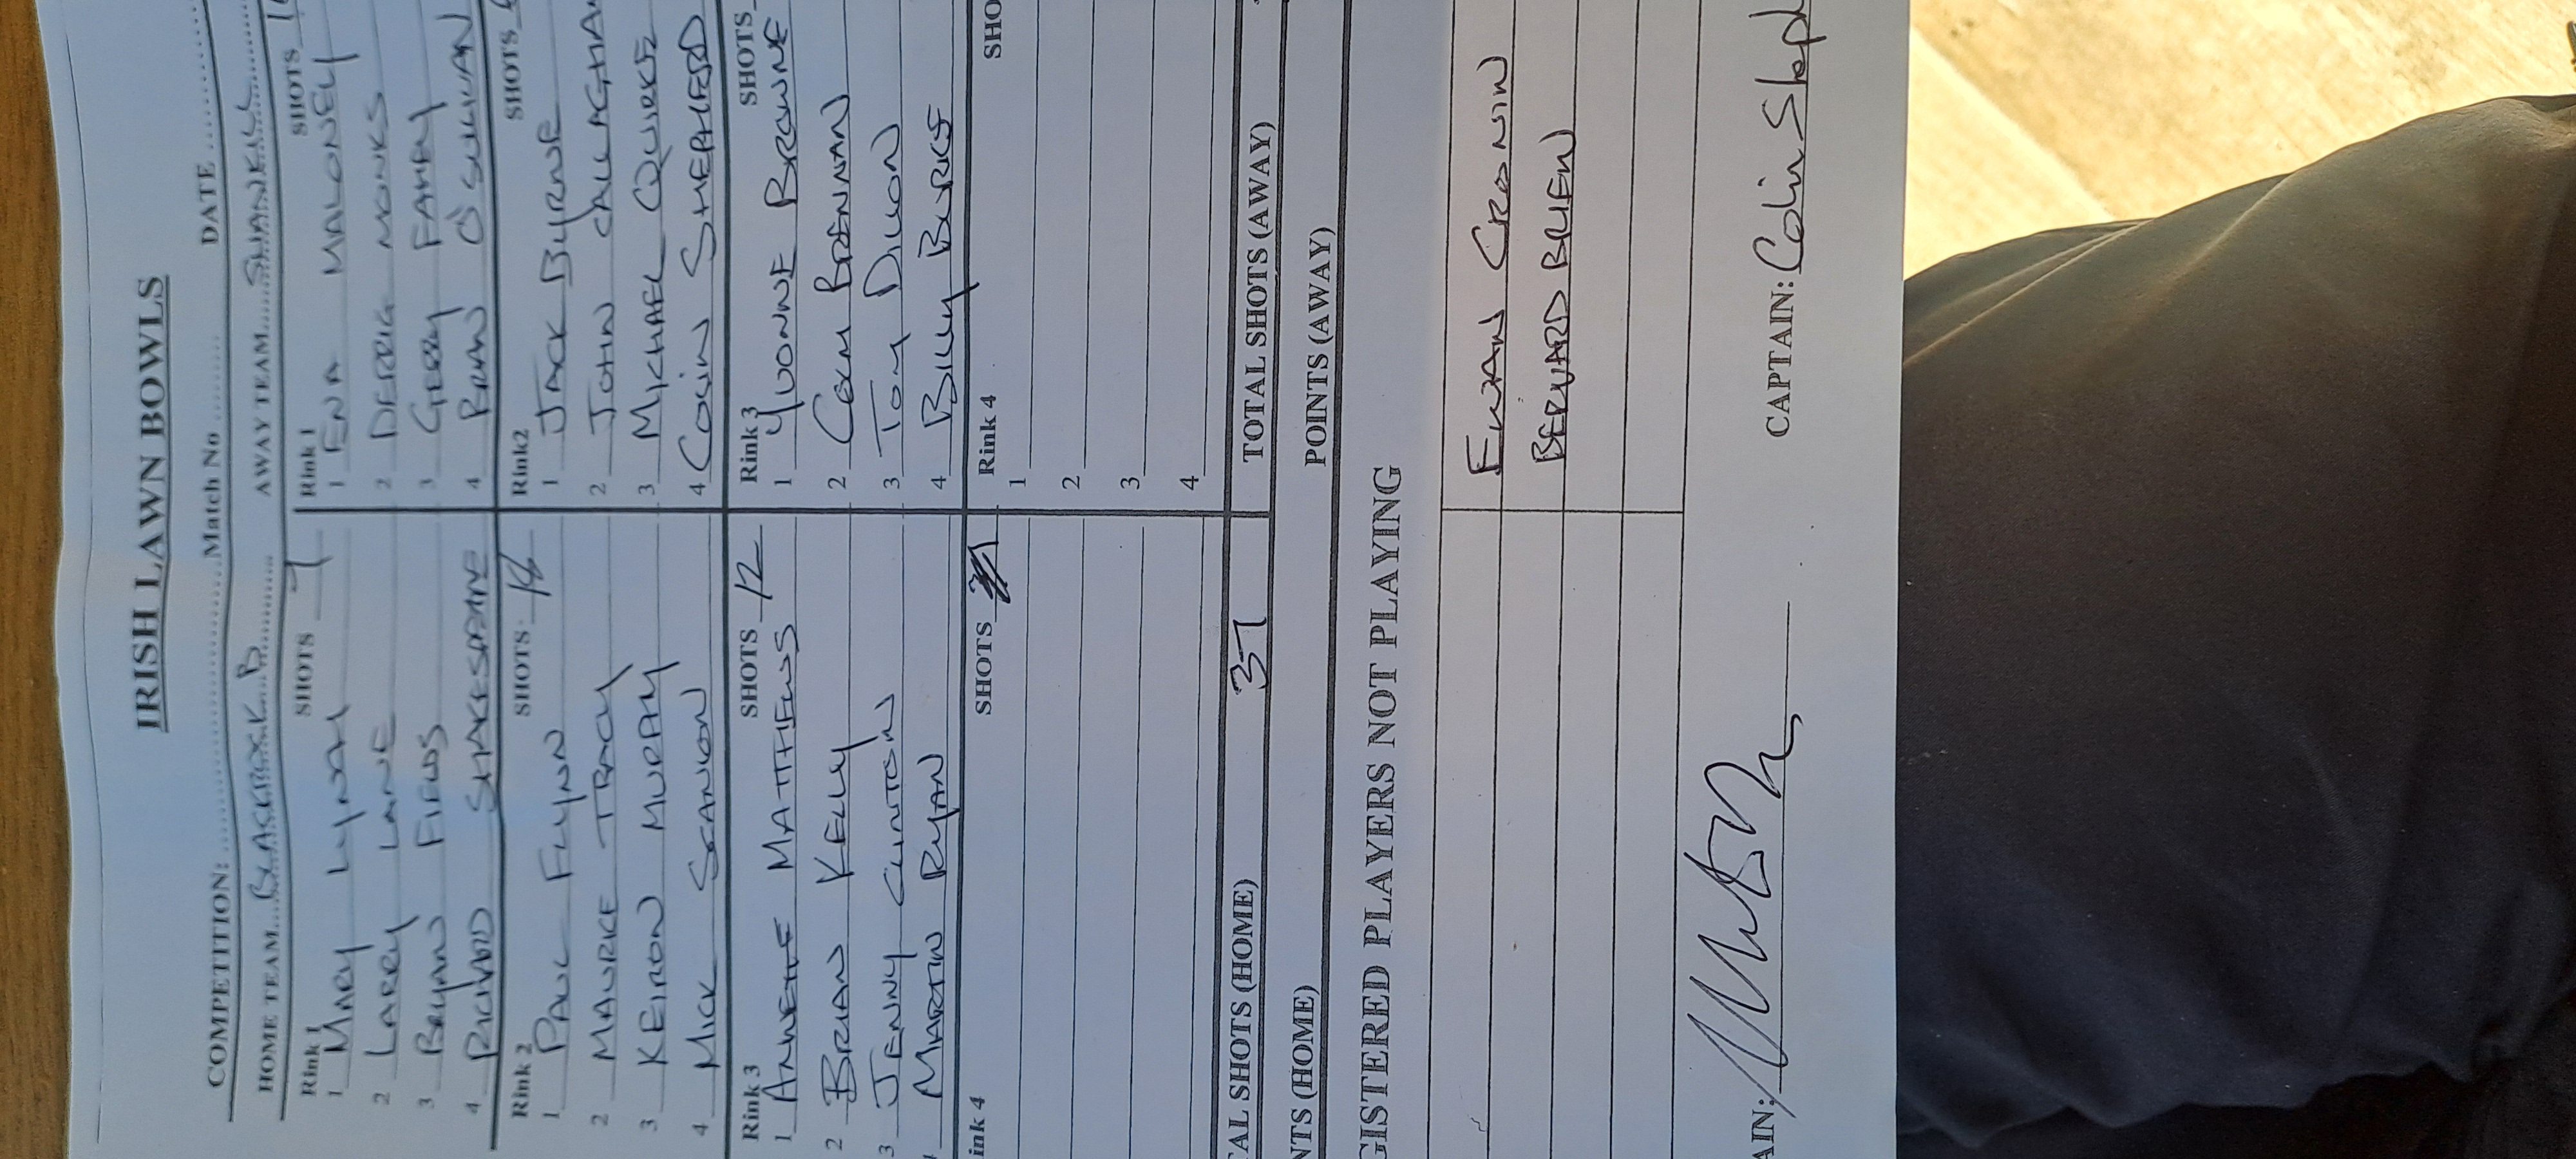 IRISH LAWN BOWLS
COMPETITION: Match No DATE
HOME TEAM BLACKROCK B AWAY TEAM SHANKILL
Rink 1 SHOTS 7 Rink 1 SHOTS
1 MARY LYNCH 1 ENA MALONEY
2 LARRY LANE 2 DERRIG MONKS
3 BRYAN FIELDS 3 GERRY FAHEY
4 RICHARD SHAKESPEARE 4 BRIAN O'SULLIVAN
Rink 2 SHOTS 18 Rink2 SHOTS
1 PAUL FLYNN 1 JACK BYRNE
2 MAURICE TRACY 2 JOHN CALLAGHA
3 KEIRON MURPHY 3 MICHAEL QUIRKE
4 MICK SCANLON 4 COLIN SHEPHERD
Rink 3 SHOTS 12 Rink 3 SHOTS
1 ANNETTE MATTHEWS 1 YVONNE BROWNE
2 BRIAN KELLY 2 COLM BRENNAN
3 JENNY CLINTON 3 TOM DILLON
MARTIN RYAN 4 BILLY BURKE
ink 4 SHOTS Rink 4 SHO
1
2
3
4
AL SHOTS (HOME) 37 TOTAL SHOTS (AWAY)
NTS (HOME) POINTS (AWAY)
GISTERED PLAYERS NOT PLAYING
EWAN CRONIN
BERNARD BRIEN
AIN: CAPTAIN: Colin Sheph